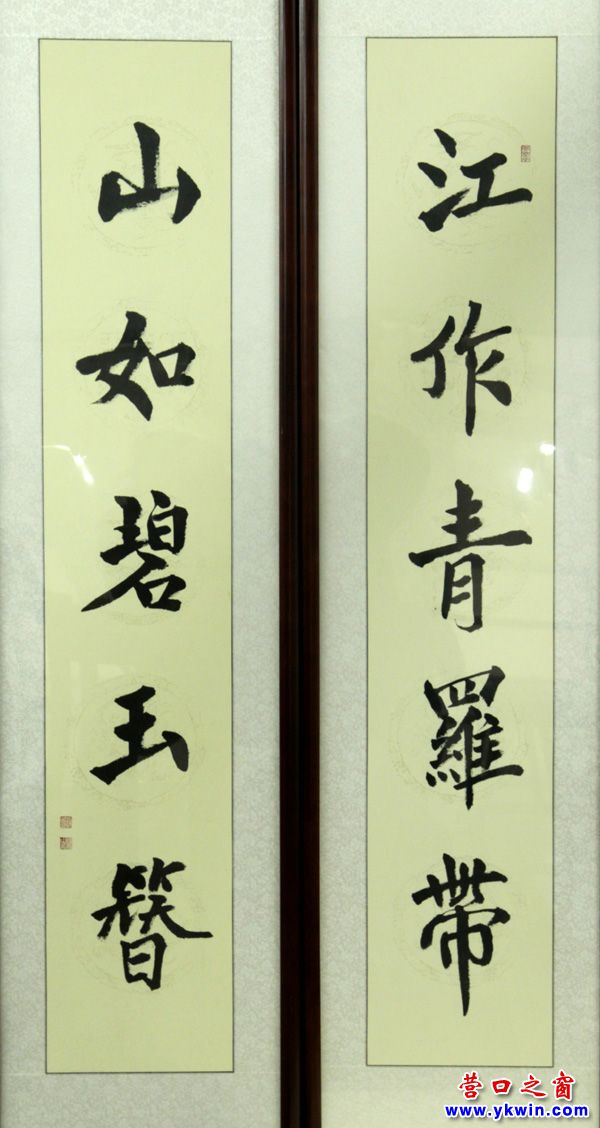 江作青羅帶
山如碧玉簪
营口之窗
www.ykwin.com